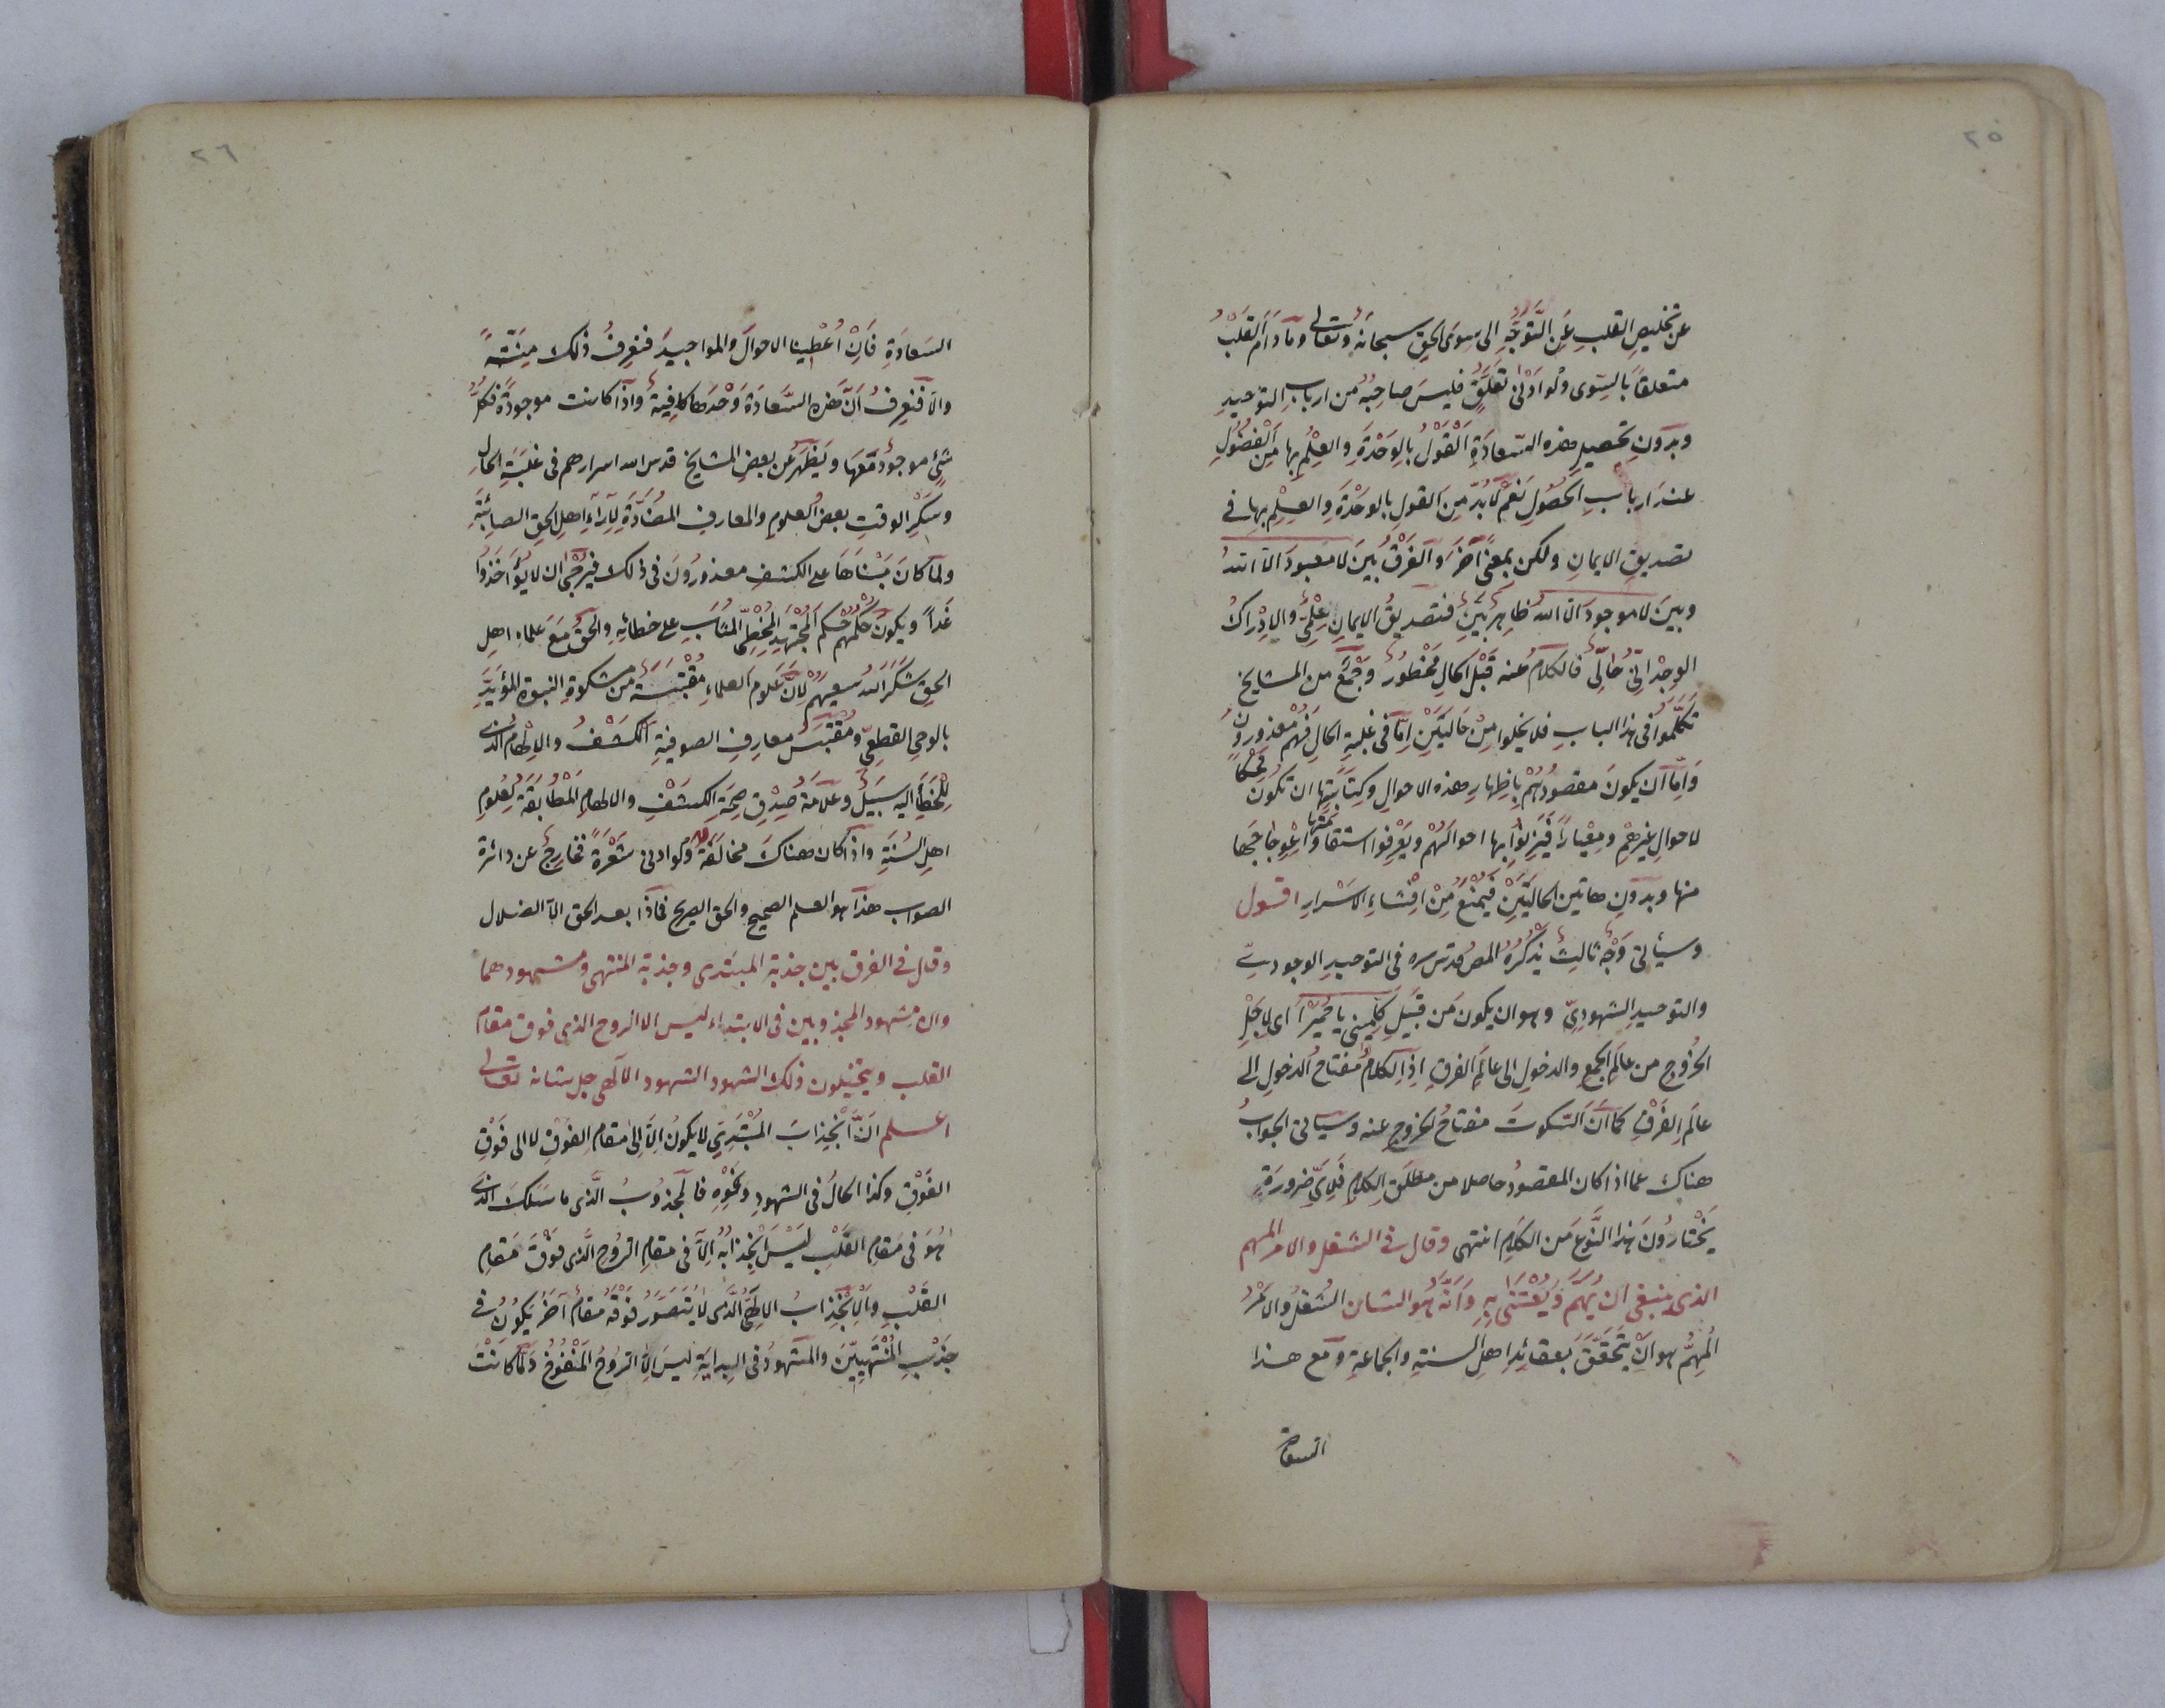 ٢٥
عن تخليص القلب عَنِ التَّوَجُّهِ الى سِوَى الحق سبحانهُ وَتعالى وَمادَامَ القَلْبُ
متعلقاً بالسِّوى ولَوادَنْى تعَلُّقٍ فليسَ صاحِبُهُ من اربابِ التوحيدِ
وبدونِ تحصيلِ هذه السّعادَةِ اَلْقَوْلُ بالِوَحْدَةِ والعِلْمُ بها مِنَ الْفُضُولِ
عندَ اربابِ الحصُولِ نَعَمْ لَابُدَّ مِنَ القولِ بالوَحْدَةِ والعِلْمِ بها في
تصديقِ الايمانِ ولكن بمعنًى آخَرَ وَالفَرْقُ بينَ لا معبودَ الاّ اللهُ
وبينَ لاموجودَ الاّ اللهُ ظاهرٌ بَيِّنٌ فتصديقُ الايمانِ عِلْمِىٌّ والاِدْراكُ
الوِجْدانِىُّ حَالِىٌّ فالكلامُ عنه قَبْلَ الحالِ مَحْظُورٌ وَجَمْعٌ من المشايخ
تَكَلَّمُوا فى هذا البابِ فلا يخلوا مِنْ حَالَيَيْنِ اِمّا فى غلبةِ الحالِ فَهُمْ مَعْذورونَ
وَاِمّا اَن يكونَ مقصُودُهُمْ بِاِظهارِ هذه الاحوالِ وكِتابَتِها ان تكُونَ مِحَكًّا
لاحوالِ غيرهِمْ ومِعْياراً فَيَزِنُوا بها احوالَهُمْ ويَعْرِفوا استقامتها وَاعْوِجاجَها
منها وبدونِ هاتين الحالَتَيْنِ فَيُمْنَعُ مِنْ اِفْشاءِ الاَسْرارِ اقول
وسيأتى وَجْهٌ ثالثٌ يَذْكُرُهُ المص قدس سره فى التوحيدِ الوجودىِّ
والتوحيدِ الشهودِىِّ وهو ان يكونَ مِن قَبيلِ كَلِّمِينى يا حُمَيْرا اى لاجلِ
الخُروجِ من عالَمِ الجمعِ والدخولِ الى عالَمِ الفرقِ اِذِ الكلامُ مفتاحُ الدخولِ الى
عالَمِ الفَرْقِ كما اَنّ السّكوتَ مفتاحُ الخروجِ عنه وسيأتى الجوابُ
هناك عما اذا كان المقصودُ حاصلا من مطلَقِ الكلامِ فَلِاَىِّ ضرورةٍ
يَخْتارُونَ هذا النَّوعَ من الكلامِ انتهى وقال فى الشغل والامر المهم
الذى ينبغى ان يُهَمَّ وَيُعْتَنٰى بِهِ وَاَنَّهُ هو الشان الشُغلُ والاَمْرُ
المُهِمُّ هو اَنْ يَتَحَقَّقَ بعقائدِ اهلِ السنةِ والجماعةِ ومع هذا
السعادة
٢٦
السَعادَةِ فَاِنْ اُعْطِينا الاحوالَ والمواجيدَ فنعرِفُ ذلك مِنَّةً
والّا فنعرِفُ اَنّ هذه السَّعادَةَ وَحْدَها كافِيةٌ واذا كانت موجودَةً فكلُّ
شئٍ موجودٌ مَعَها ويَظْهَرُ عن بعضِ المشايخِ قدس الله اسرارهم فى غلَبَةِ الحالِ
وسكرِ الوقتِ بعضُ العلومِ والمعارفِ المُضادَّةِ لِآراءِ اهلِ الحقِ الصائبَةِ
ولمّا كانَ مَبْناها على الكشفِ معذورُونَ فى ذلك فَيُرْجٰى ان لا يُؤاخَذُوا
غَداً ويكونُ حُكْمُهُم حُكْمَ الْمُجْتَهِدِ المُخْطِئِ المُثابِ على خطائِهِ والحَقُّ مَعَ علماءِ اهلِ
الحقِ شكَرَ اللهُ سعيهُمْ لِاَنَّ علومَ العلماءِ مُقْتَبَسَةٌ من مشكوةِ النبوةِ المؤَيَّدَةِ
بالوحىِ القطعِىِّ ومُقْتَبَسُ معارفِ الصوفيةِ اَلْكَشْفُ والاِلْهامُ الّذى
لِلْخَطَأِ اليه سَبيلٌ وعَلَامَةُ صِدْقِ صِحَّةِ الكشْفِ والالهامِ المُطابَقَةُ لِعُلُومِ
اهلِ السُنةِ واذا كان هناكَ مخالَفَةٌ وَلَوادنى شَعْرَةٍ فخارجٌ عن دائرة
الصواب هذا هو العلم الصحيح والحق الصريح فماذا بعد الحق الا الضلال
وقال فى الفرق بين جذبة المبتدى وجذبة المنتهى ومشهودهما
وان مشهود المجذوبين فى الابتداء ليس الا الروح الذى فوق مقام
القلب ويتخيلون ذلك الشهود الشهود الالهى جل شانه تعالى
اعلم اَنَّ انْجِذابَ المُبْتَدِى لا يكونُ اِلّا اِلى مقامِ الفَوْقِ لا الى فَوْقِ
الفَوْقِ وكذا الحالُ فى الشهودِ ونَحْوِهِ فالمجذوبُ الَّذى ما سَلَكَ الّذى
هُوَ فى مَقامِ القَلْبِ ليْسَ انْجِذابُهُ اِلّا فى مقامِ الرُوحِ الَّذى فوْقَ مَقامِ
القَلْبِ والاِنْجِذابُ الالٰهىُّ الَّذى لا يُتَصَوَّرُ فَوْقَهُ مقامٌ آخَرُ يكُونُ فى
جَذْبِ المُنْتَهِيِّينَ والمَشهودُ فى البِدايَةِ ليسَ اِلّا الرُوحُ المَنْفُوخُ ولمّا كانَتْ